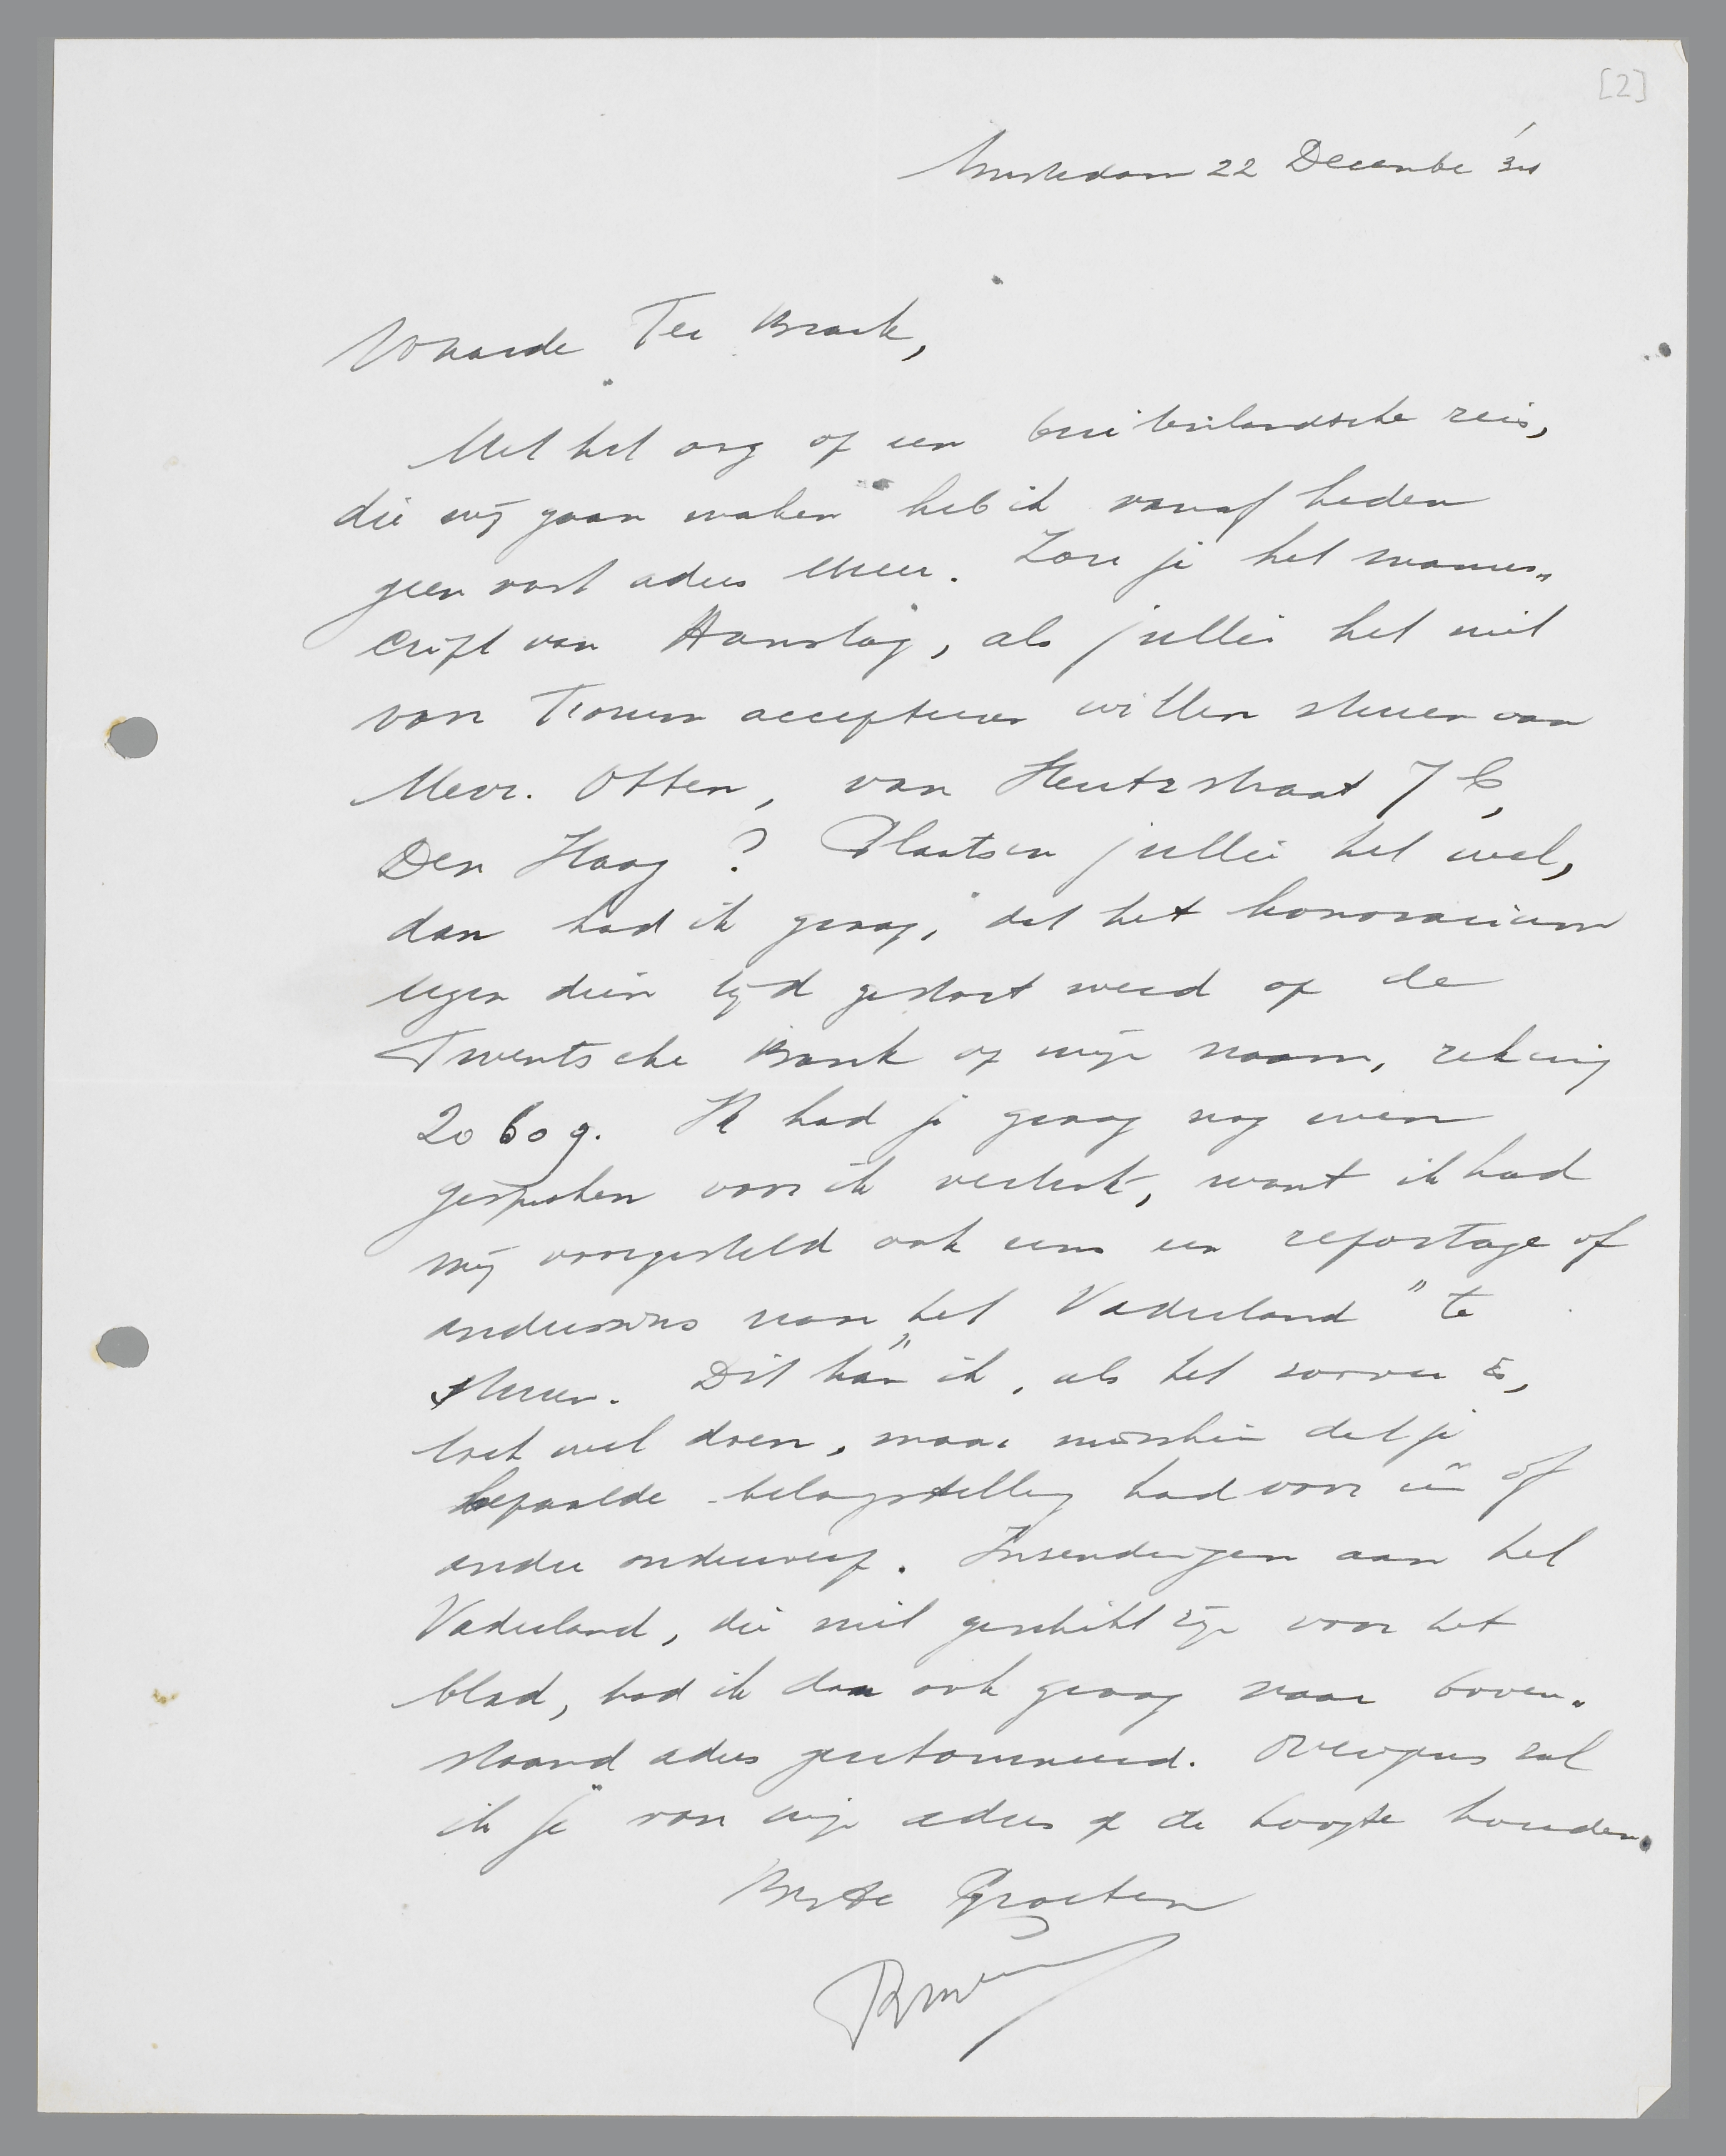 [2]
Amsterdam 22 December '34
Waarde Ter Braak,
Met het oog op een buitenlandsche reis,
die wij gaan maken heb ik vanaf heden
geen vast adres meer. Zou je het manus-
cript van Aanslag, als jullie het niet
voor Forum accepteeren willen sturen aan
Mevr. Otten, van Heutzstraat 7
Den Haag? Plaatsen jullie het wel,
dan had ik graag, dat het honorarium
tegen dien tijd gestort werd op de
Twentsche Bank op mijn naam, rekening
20609. Ik had je graag nog even
gesproken voor ik vertrek, want ik had
mij voorgesteld ook eens een reportage of
anderszins naar "het Vaderland" te
sturen. Dit kan ik, als het zoover is,
toch wel doen, maar misschien dat je
bepaalde belangstelling had voor een of
ander onderwerp. Inzendingen aan het
Vaderland, die niet geschikt zijn voor het
blad, had ik dan ook graag naar boven-
staand adres geretourneerd. Overigens zal
ik je van mijn adres op de hoogte houden.
Beste Groeten